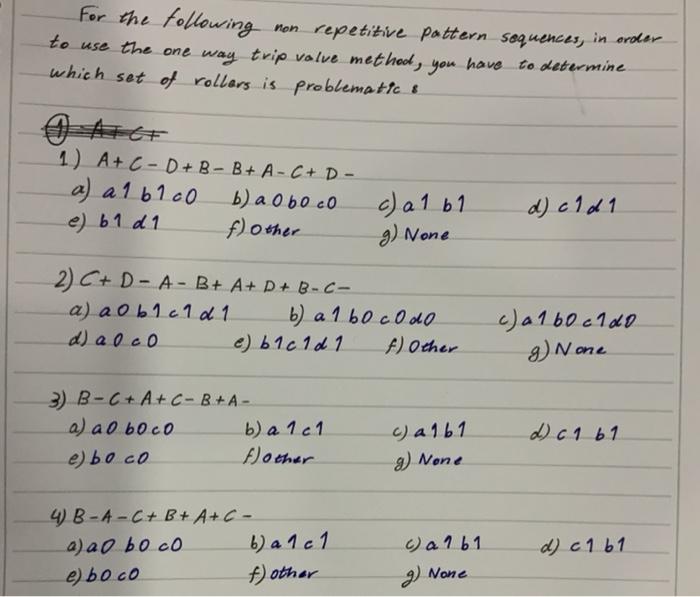 For the following non repetitive pattern sequences, in order
to use the one way trip valve method, you have to determine
which set of rollers is problematic :
① A+ C+
1) A+ C- D+ B- B+ A- C+ D-
a) a1 b1 c0 b) a0 b0 c0 c) a1 b1 d) c1 d1
e) b1 d1 f) other g) None
2) C+ D- A- B+ A+ D+ B- C-
a) a0 b1 c1 d1 b) a1 b0 c0 d0 c) a1 b0 c1 d0
d) a0 c0 e) b1 c1 d1 f) Other g) None
3) B- C+ A+ C- B+ A-
a) a0 b0 c0 b) a1 c1 c) a1 b1 d) c1 b1
e) b0 c0 f) other g) None
4) B- A- C+ B+ A+ C-
a) a0 b0 c0 b) a1 c1 c) a1 b1 d) c1 b1
e) b0 c0 f) other g) None